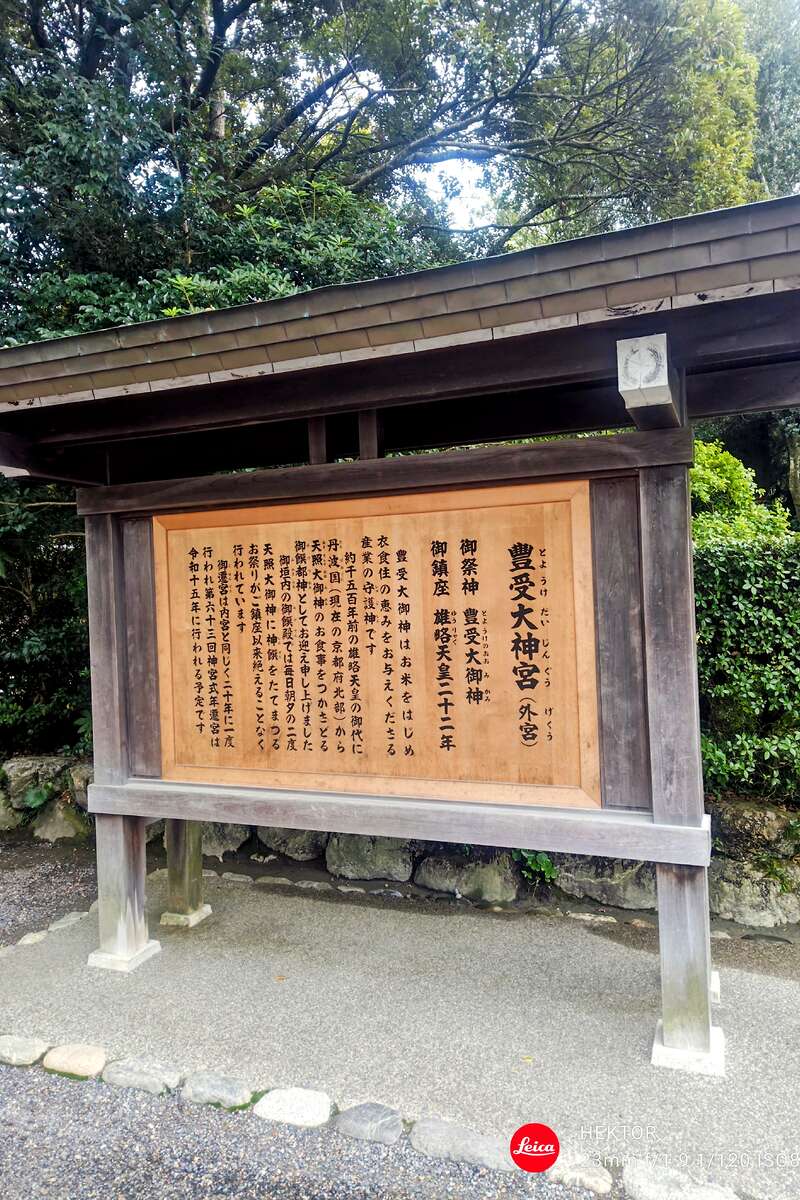 豊受大神宮（外宮）
とようけだいじんぐう
げくう
御祭神 豊受大御神
とようけのおおみかみ
御鎮座 雄略天皇二十二年
ゆうりゃく
豊受大御神はお米をはじめ
衣食住の恵みをお与えくださる
産業の守護神です
約千五百年前の雄略天皇の御代に
丹波国（現在の京都府北部）から
天照大御神のお食事をつかさどる
御饌都神としてお迎え申し上げました
御垣内の御饌殿では毎日朝夕の二度
天照大御神に神饌をたてまつる
お祭りがご鎮座以来絶えることなく
行われています
御遷宮は内宮と同じく二十年に一度
行われ第六十三回神宮式年遷宮は
令和十五年に行われる予定です
Leica
HEKTOR
23mm f/1.9 1/120 ISO8